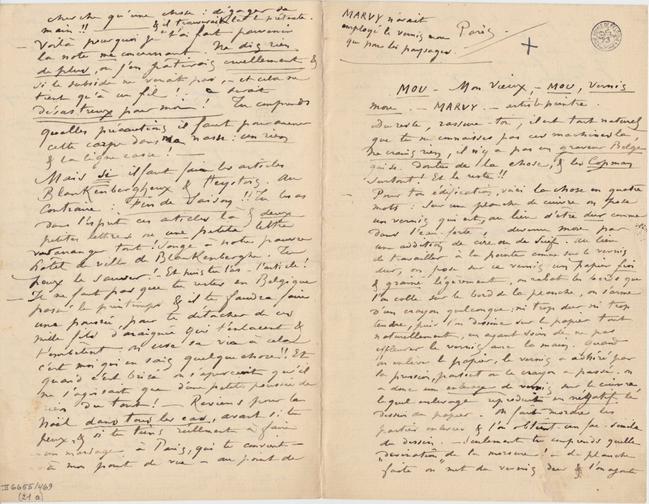 cherche qu'une chose : dégager sa
main !! & il travaillait le prétexte.
Voilà pourquoi je t'ai fait parvenir
la note me concernant. Ne dis rien
de plus, ou j'en pâtirais cruellement &
si le subside ne venait pas, – et cela ne
tient qu'à un fil ! – ce serait
désastreux pour moi ! Tu comprends
quelles précautions il faut pour amener
cette carpe dans ma nasse : un rien
& la ligne casse !
Mais si il faut faire les articles
Blankenbergheux & Heystois. Au
Contraire : Fin de Saison !! Tu as
dans l'esprit ces articles là & deux
petites lettres ou une petite lettre
Songe à notre pauvre
hôtel de ville de Blankenberghe. Tu
peux le sauver ! Et puis tu as l'article !
– Il ne faut pas que tu restes en Belgique
passé le printemps & il te faudra faire
une poussée, pour te détacher de ces
mille fils d'araignée qui t'enlacent &
t'enserrent. On use sa vie à cela
c'est moi qui en sais quelque chose !! Et
quand c'est brisé on s'aperçoit qu'il
ne s'agissait que d'une petite poussée de
rien du tout ! – Reviens pour la
Noël dans tous les cas, avant si tu
peux, & si tu tiens réellement à faire
un mariage à Paris, qui te convient
– à mon point de vue – au point de
II 6655/469
(21 a)
MARVY n'avait
employé le vernis mou
que pour les paysages.
Paris
+
MOU – Mon Vieux, – MOU, vernis
mou. – MARVY – artiste peintre.
Du reste, rassure-toi, il est tout naturel
que tu ne connaisses pas ces machines là,
ne crains rien, il n'y a pas un graveur Belge
qui se doute de la chose, & les Copman
surtout ! Et le reste !!
Pour ton édification, voici la chose en quatre
mots : Sur une planche de cuivre on pose
un vernis qui est, au lieu d'être dur comme
dans l'eau forte, devenu mou par
une addition de cire ou de suif. Au lieu
de travailler à la pointe comme sur le vernis
dur, on pose sur ce vernis un papier fin
& grainé légèrement, on rabat les bords que
l'on colle sur le bord de la planche, on s'arme
d'un crayon quelconque : ni trop dur ni trop
tendre, puis l'on dessine sur le papier tout
naturellement, en ayant soin de ne pas
effleurer le vernis avec la main. Quand
on enlève le papier, le vernis a adhéré par
la pression, partout où le crayon a passé. On
a donc un enlevage de vernis sur le cuivre,
lequel enlevage reproduit en négatif le
dessin du papier. On fait mordre les
parties enlevées & l'on obtient un fac-simile
du dessin. – Seulement tu comprends quelle
"déviation" de la morsure ! – La planche
faite on met du vernis dur & l'on ajoute